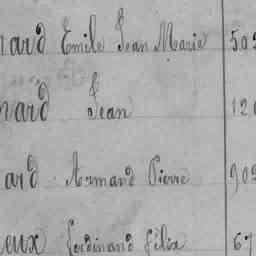 nard Emile Jean Marie 502
nard Jean 120
ard Armand Pierre 902
eux Ferdinand Félix 67